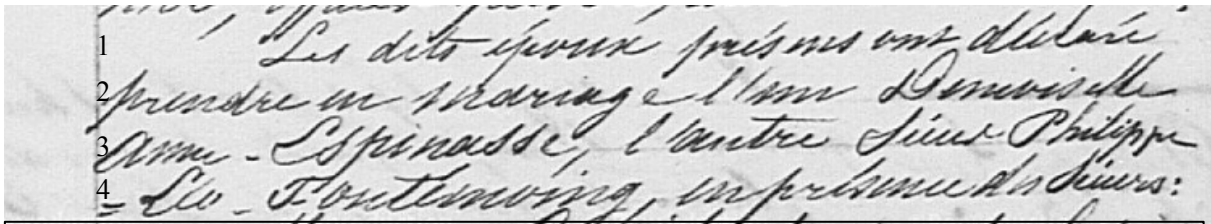 1 Les dits époux présens ont déclaré
2 prendre en mariage l'un Demoiselle
3 Anne - Espinasse, l'autre Sieur Philippe
4 = Léo - Fontemoing, en présence des Sieurs: